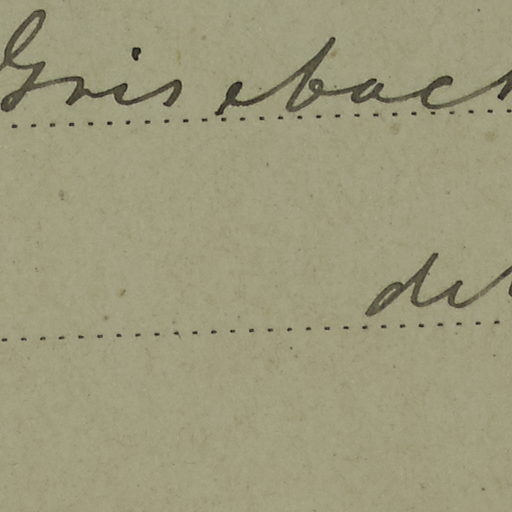 Grisebach
det